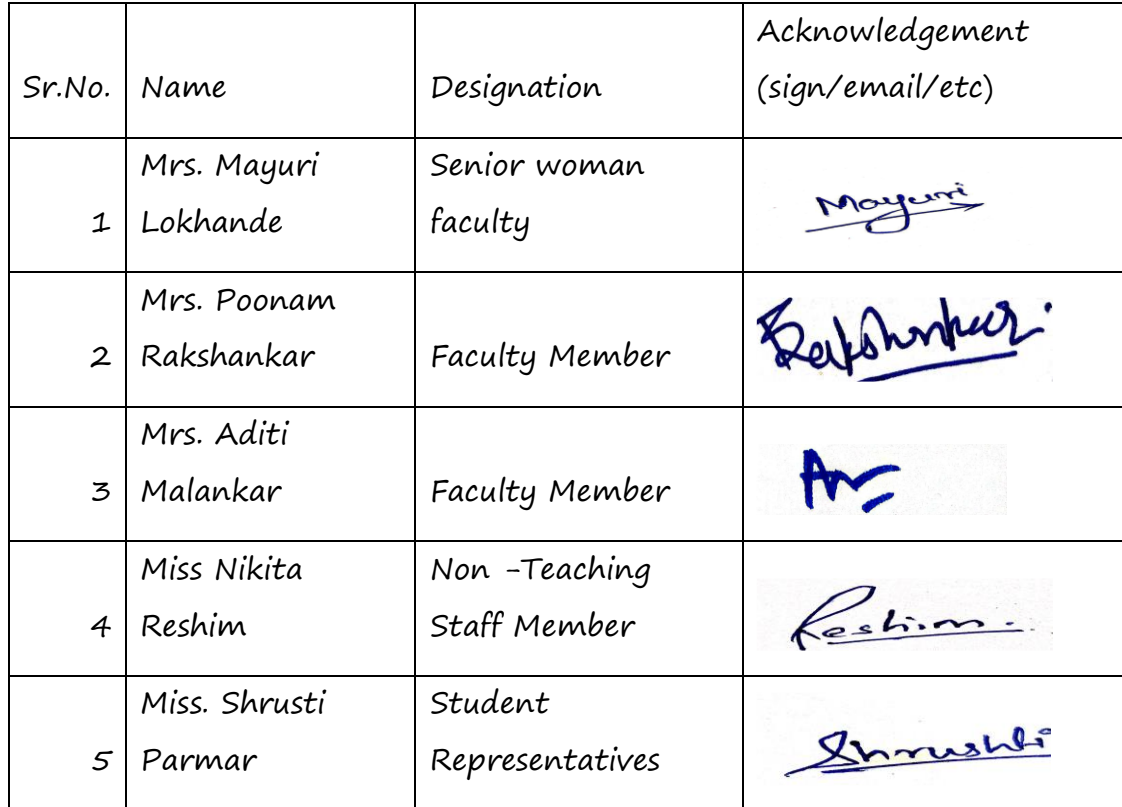 Sr.No. Name Designation Acknowledgement (sign/email/etc)
1 Mrs. Mayuri Lokhande Senior woman faculty Mayuri
2 Mrs. Poonam Rakshankar Faculty Member Rakshankar
3 Mrs. Aditi Malankar Faculty Member
4 Miss Nikita Reshim Non -Teaching Staff Member Reshim
5 Miss. Shrusti Parmar Student Representatives Shrushti